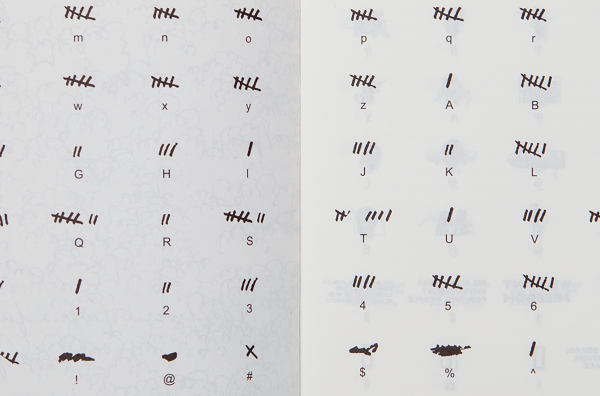 m n o p q r
w x y z A B
G H I J K L
Q R S T U V
1 2 3 4 5 6
! @ # $ % ^